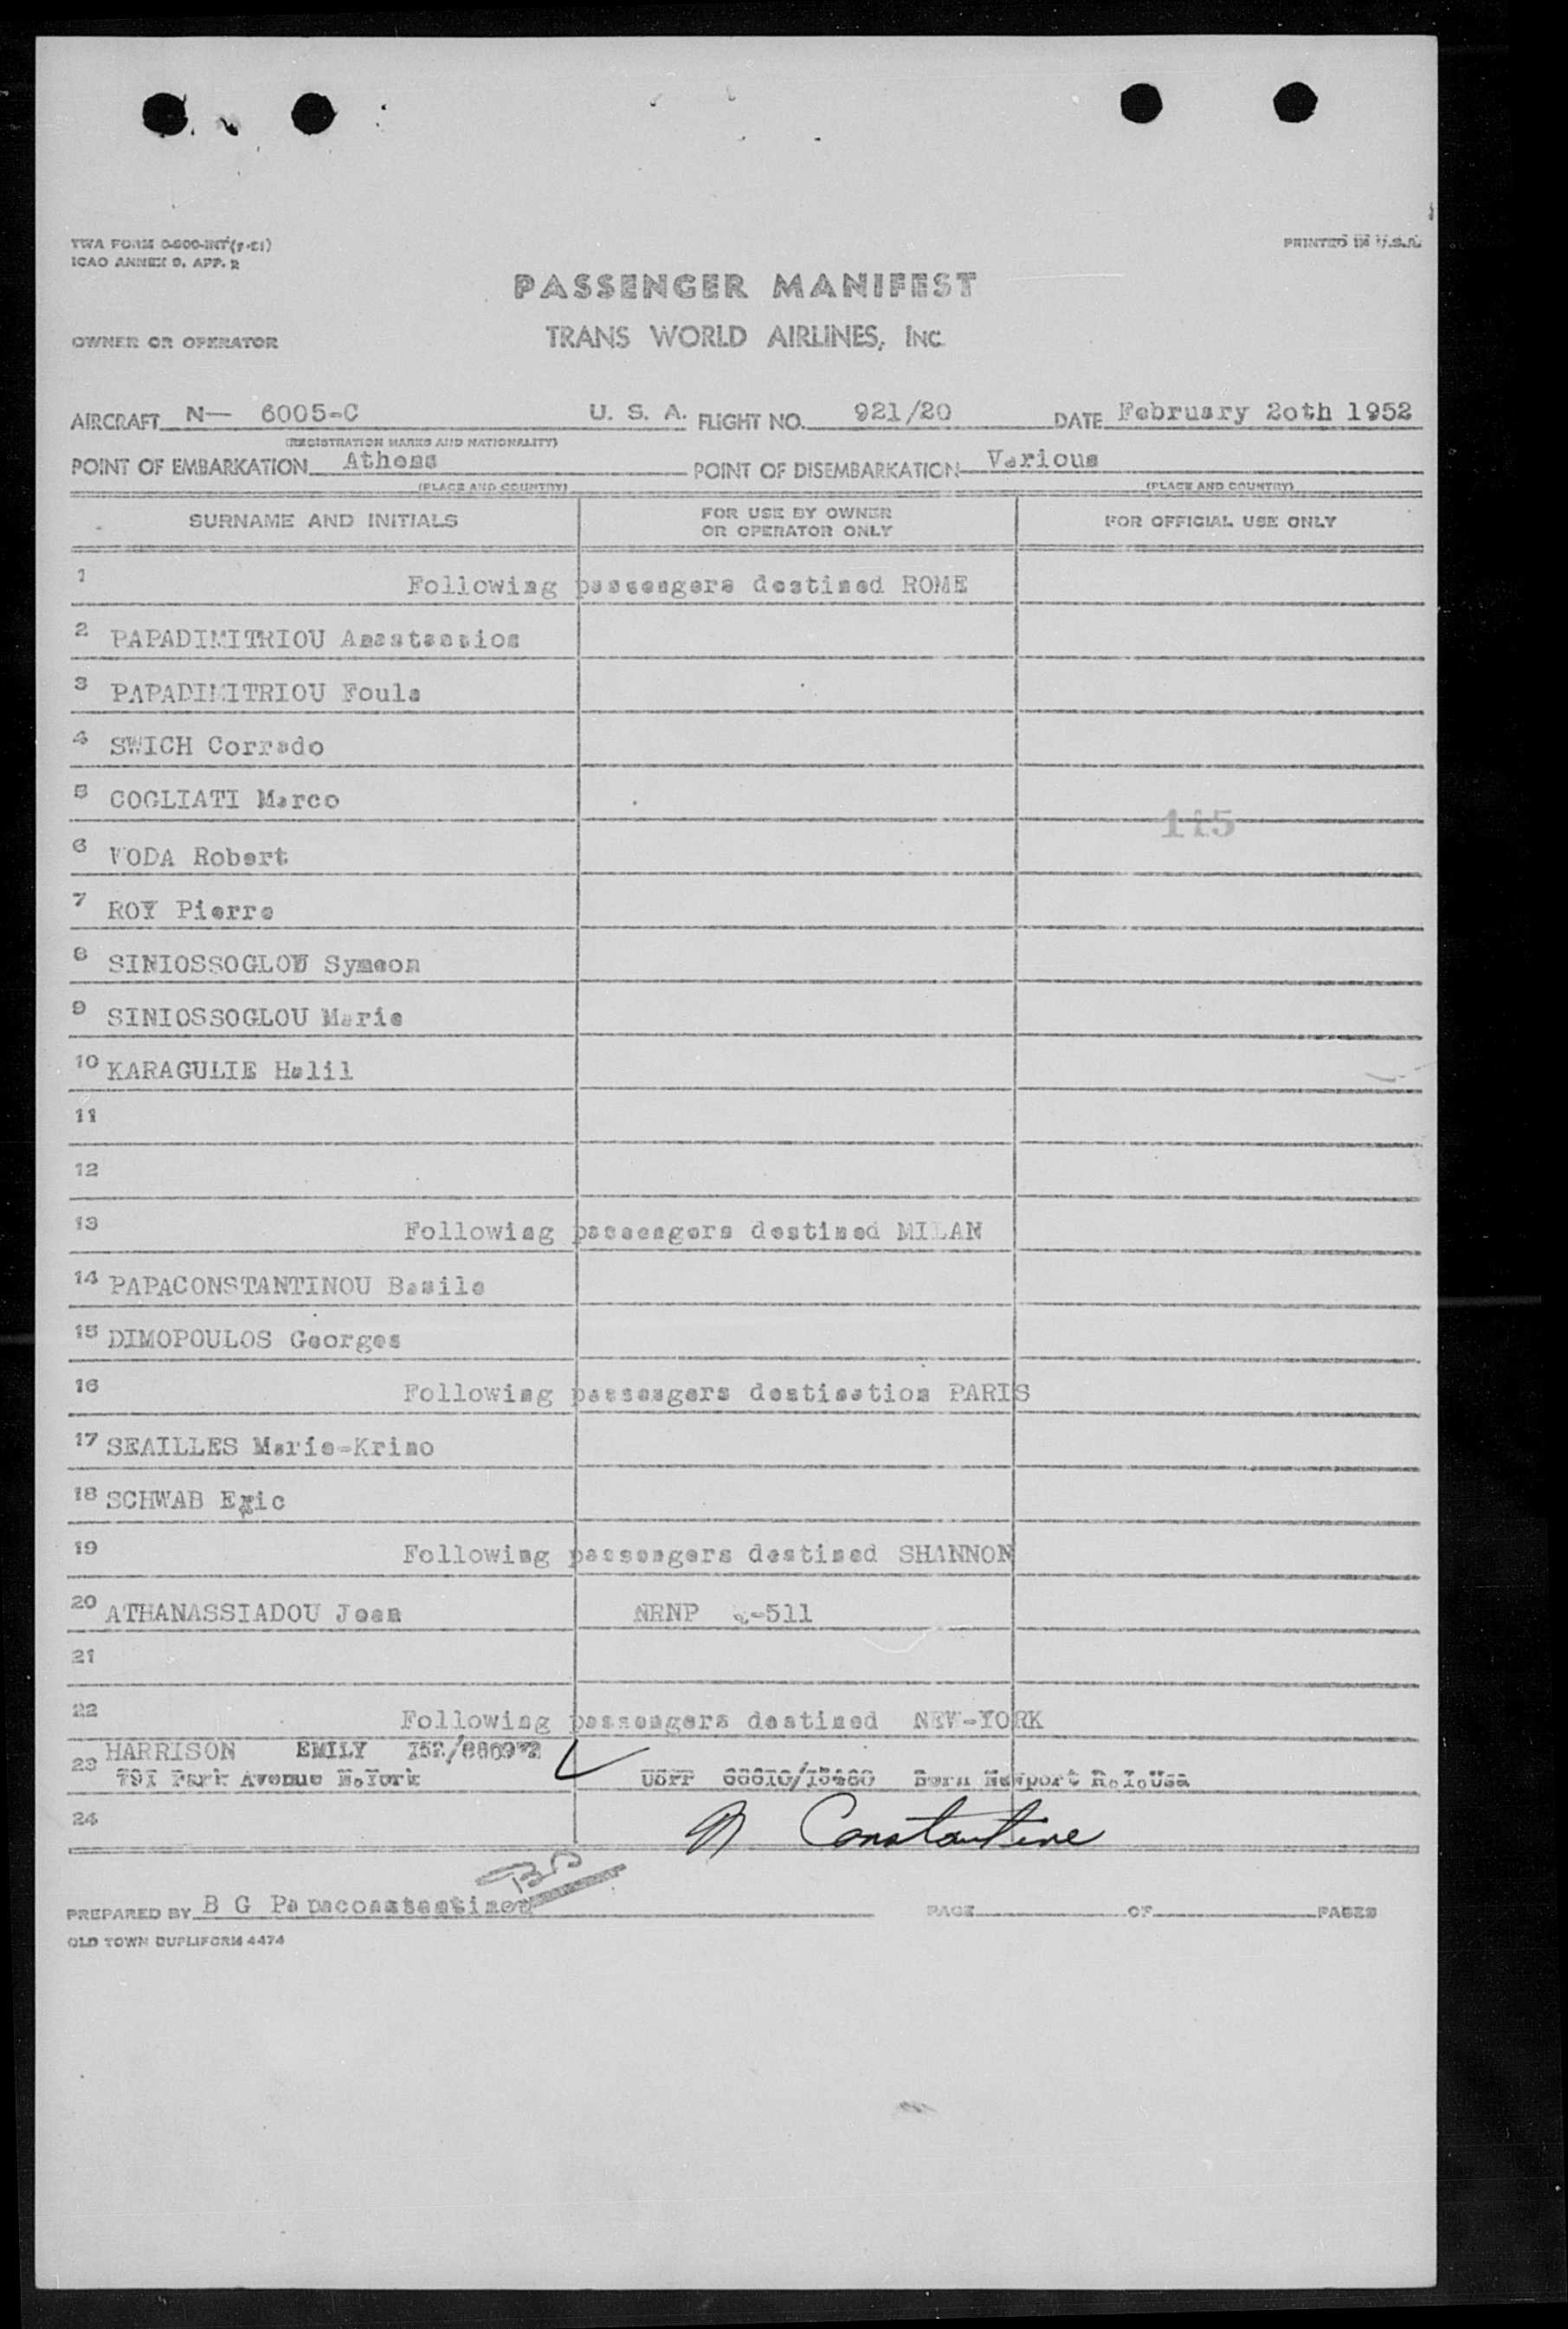 TWA FORM O-500-INT(7-51)
ICAO ANNEX 9, APP. 2
PRINTED IN U.S.A.
PASSENGER MANIFEST
OWNER OR OPERATOR
TRANS WORLD AIRLINES, INC.
AIRCRAFT N— 6005-C U. S. A. FLIGHT NO. 921/20 DATE February 2oth 1952
(REGISTRATION MARKS AND NATIONALITY)
POINT OF EMBARKATION Athens POINT OF DISEMBARKATION Various
(PLACE AND COUNTRY) (PLACE AND COUNTRY)
SURNAME AND INITIALS FOR USE BY OWNER OR OPERATOR ONLY FOR OFFICIAL USE ONLY
1 Following passengers destined ROME
2 PAPADIMITRIOU Anastassios
3 PAPADIMITRIOU Foula
4 SWICH Corrado
5 COGLIATI Marco
115
6 VODA Robert
7 ROY Pierre
8 SINIOSSOGLOU Symeon
9 SINIOSSOGLOU Marie
10 KARAGULIE Halil
11
12
13 Following passengers destined MILAN
14 PAPACONSTANTINOU Basile
15 DIMOPOULOS Georges
16 Following passengers destination PARIS
17 SEAILLES Marie-Krino
18 SCHWAB Eric
19 Following passengers destined SHANNON
20 ATHANASSIADOU Jean NRNP -511
21
22 Following passengers destined NEW-YORK
HARRISON EMILY
23 791 Park Avenue N.York USPP Born Newport R.I.Usa
24 N Constantine
PREPARED BY B G Papaconstantinou PAGE OF PAGES
OLD TOWN DUPLIFORM 4474